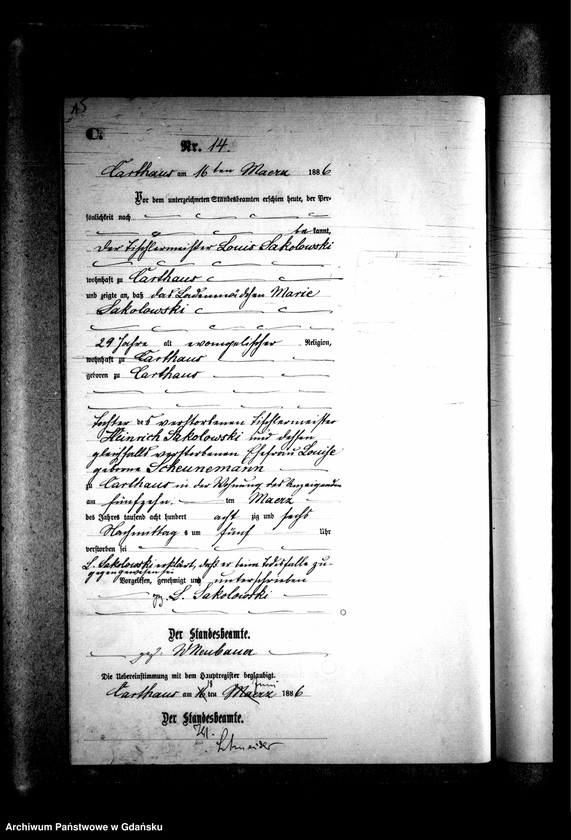 15
C.
Nr. 14.
Carthaus am 16 ten Maerz 1886
Vor dem unterzeichneten Standesbeamten erschien heute, der Per-
sönlichkeit nach
be kannt,
der Tischlermeister Louis Sakolowski
wohnhaft zu Carthaus
und zeigte an, daß das Ladenmädchen Marie
Sakolowski
29 Jahre alt evangelischer Religion,
wohnhaft zu Carthaus
geboren zu Carthaus
Tochter des verstorbenen Tischlermeister
Heinrich Sakolowski und dessen
gleichfalls verstorbenen Ehefrau Louise
geborne Scheunemann
zu Carthaus in der Wohnung des Anzeigenden
am fünfzehn ten Maerz
des Jahres tausend acht hundert acht zig und sechs
Nachmittag s um fünf Uhr
verstorben sei
L. Sakolowski erklärt, daß er beim Todesfalle zu-
gegen gewesen sei
Vorgelesen, genehmigt und unterschrieben
gz. L. Sakolowski
Der Standesbeamte.
gez. Neubauer
Die Uebereinstimmung mit dem Hauptregister beglaubigt.
Carthaus am 16 ten Maerz 1886
Der Standesbeamte.
Schneider
Archiwum Państwowe w Gdańsku